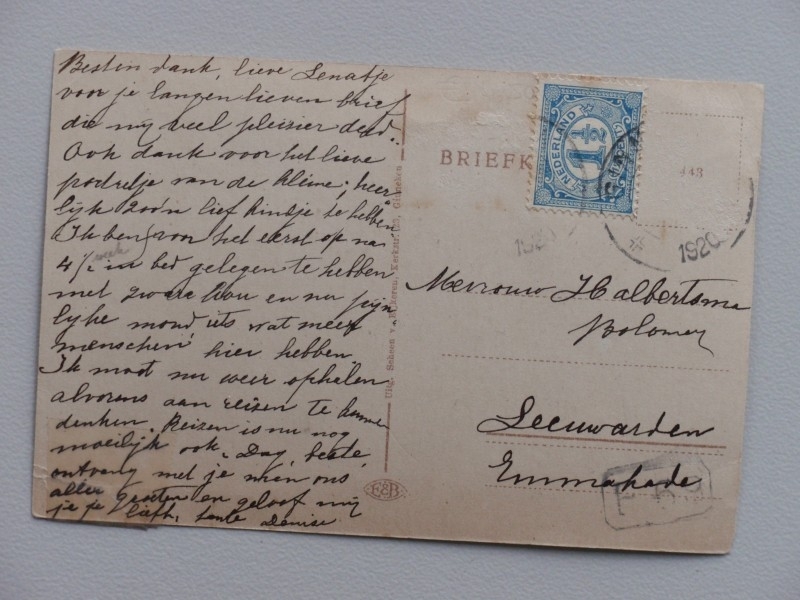 Besten dank, lieve Lenatje
voor je langen lieven brief
die mij veel pleizier deed.
Ook dank voor het lieve
portretje van de kleine; heer
lijk zoo'n lief kindje te hebben
Ik ben voor het eerst op na
4 1/2 week in bed gelegen te hebben
met zware kou en nu pijn
lijke mond iets wat meer
menschen hier hebben.
Ik moet nu weer ophalen
alvorens aan reizen te kunnen
denken. Reizen is nu nog
moeilijk ook. Dag, beste,
ontvang met je man ons
aller groeten en geloof mij
je liefh. tante Denise
Uitg. Schoen v. Kerkstr. Ginneken
E&B
BRIEFK
NEDERLAND
1½
CENT
443
1920
1920
Mevrouw Halbertsma
Bolomey
Leeuwarden
Emmakade